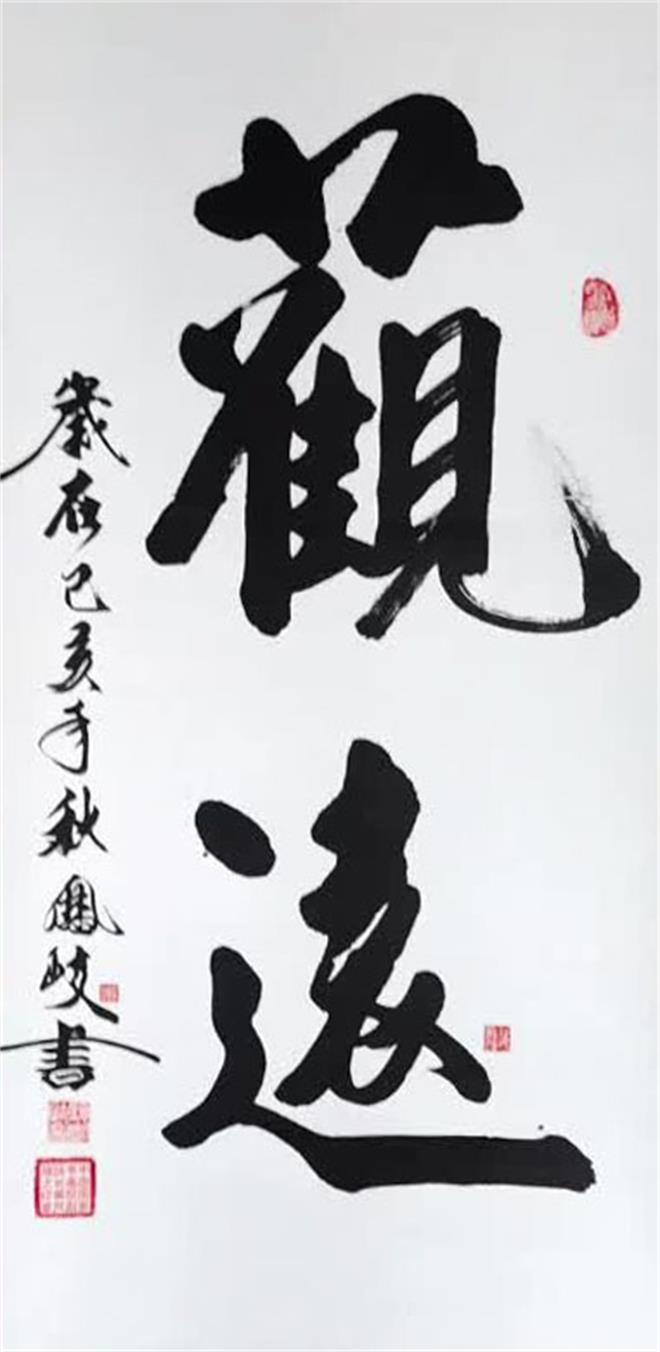 觀遠
歲在己亥年秋鳳岐書